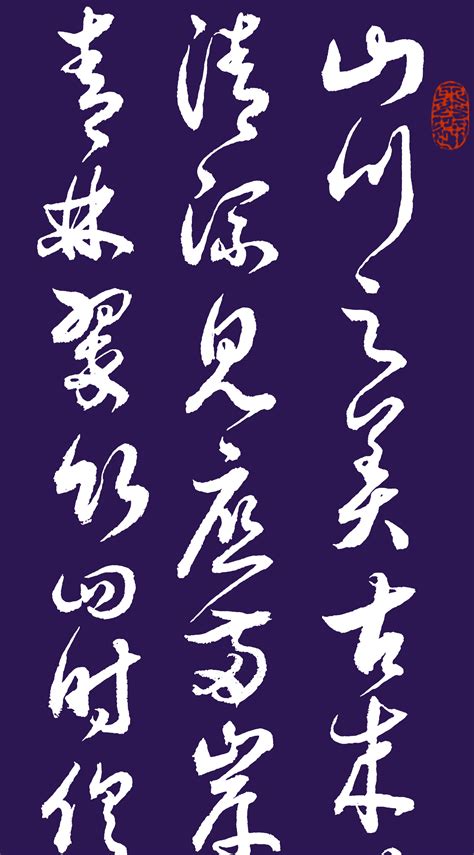 山川之美古来
清流見底两岸
青林翠竹四时俱